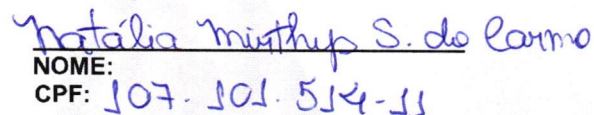 Natália Mirthys S. do Carmo
NOME:
CPF: 107.101.514-11